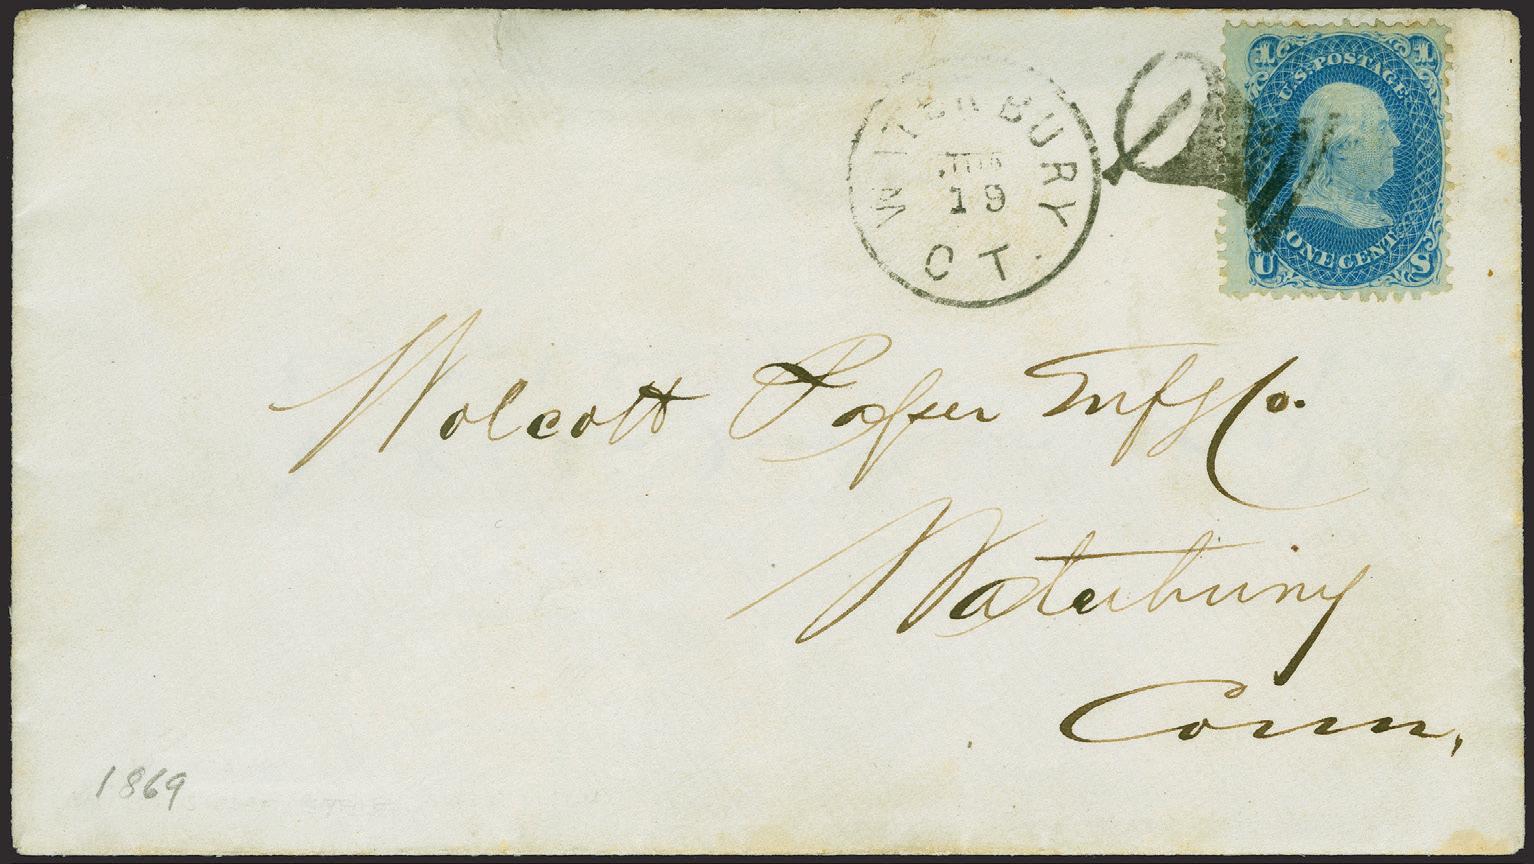 WATERBURY
19
CT.
1 1
U.S. POSTAGE
ONE CENT
U S
Wolcott Paper Mfg Co.
Waterbury
Conn.
1869